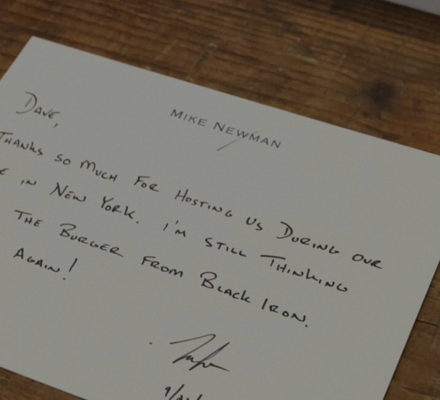 MIKE NEWMAN
DAVE,
THANKS SO MUCH FOR HOSTING US DURING OUR
IN NEW YORK. I'M STILL THINKING
THE BURGER FROM BLACK IRON.
AGAIN!